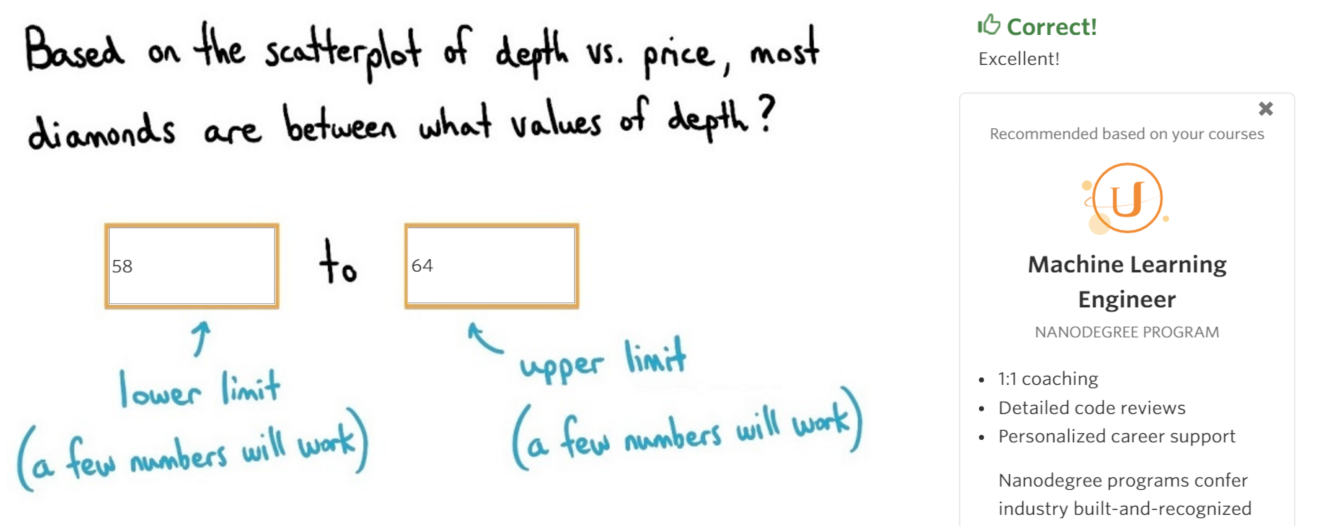 Based on the scatterplot of depth vs. price, most
diamonds are between what values of depth?
58
to
64
lower limit
(a few numbers will work)
upper limit
(a few numbers will work)
Correct!
Excellent!
Recommended based on your courses
U
Machine Learning
Engineer
NANODEGREE PROGRAM
• 1:1 coaching
• Detailed code reviews
• Personalized career support
Nanodegree programs confer
industry built-and-recognized